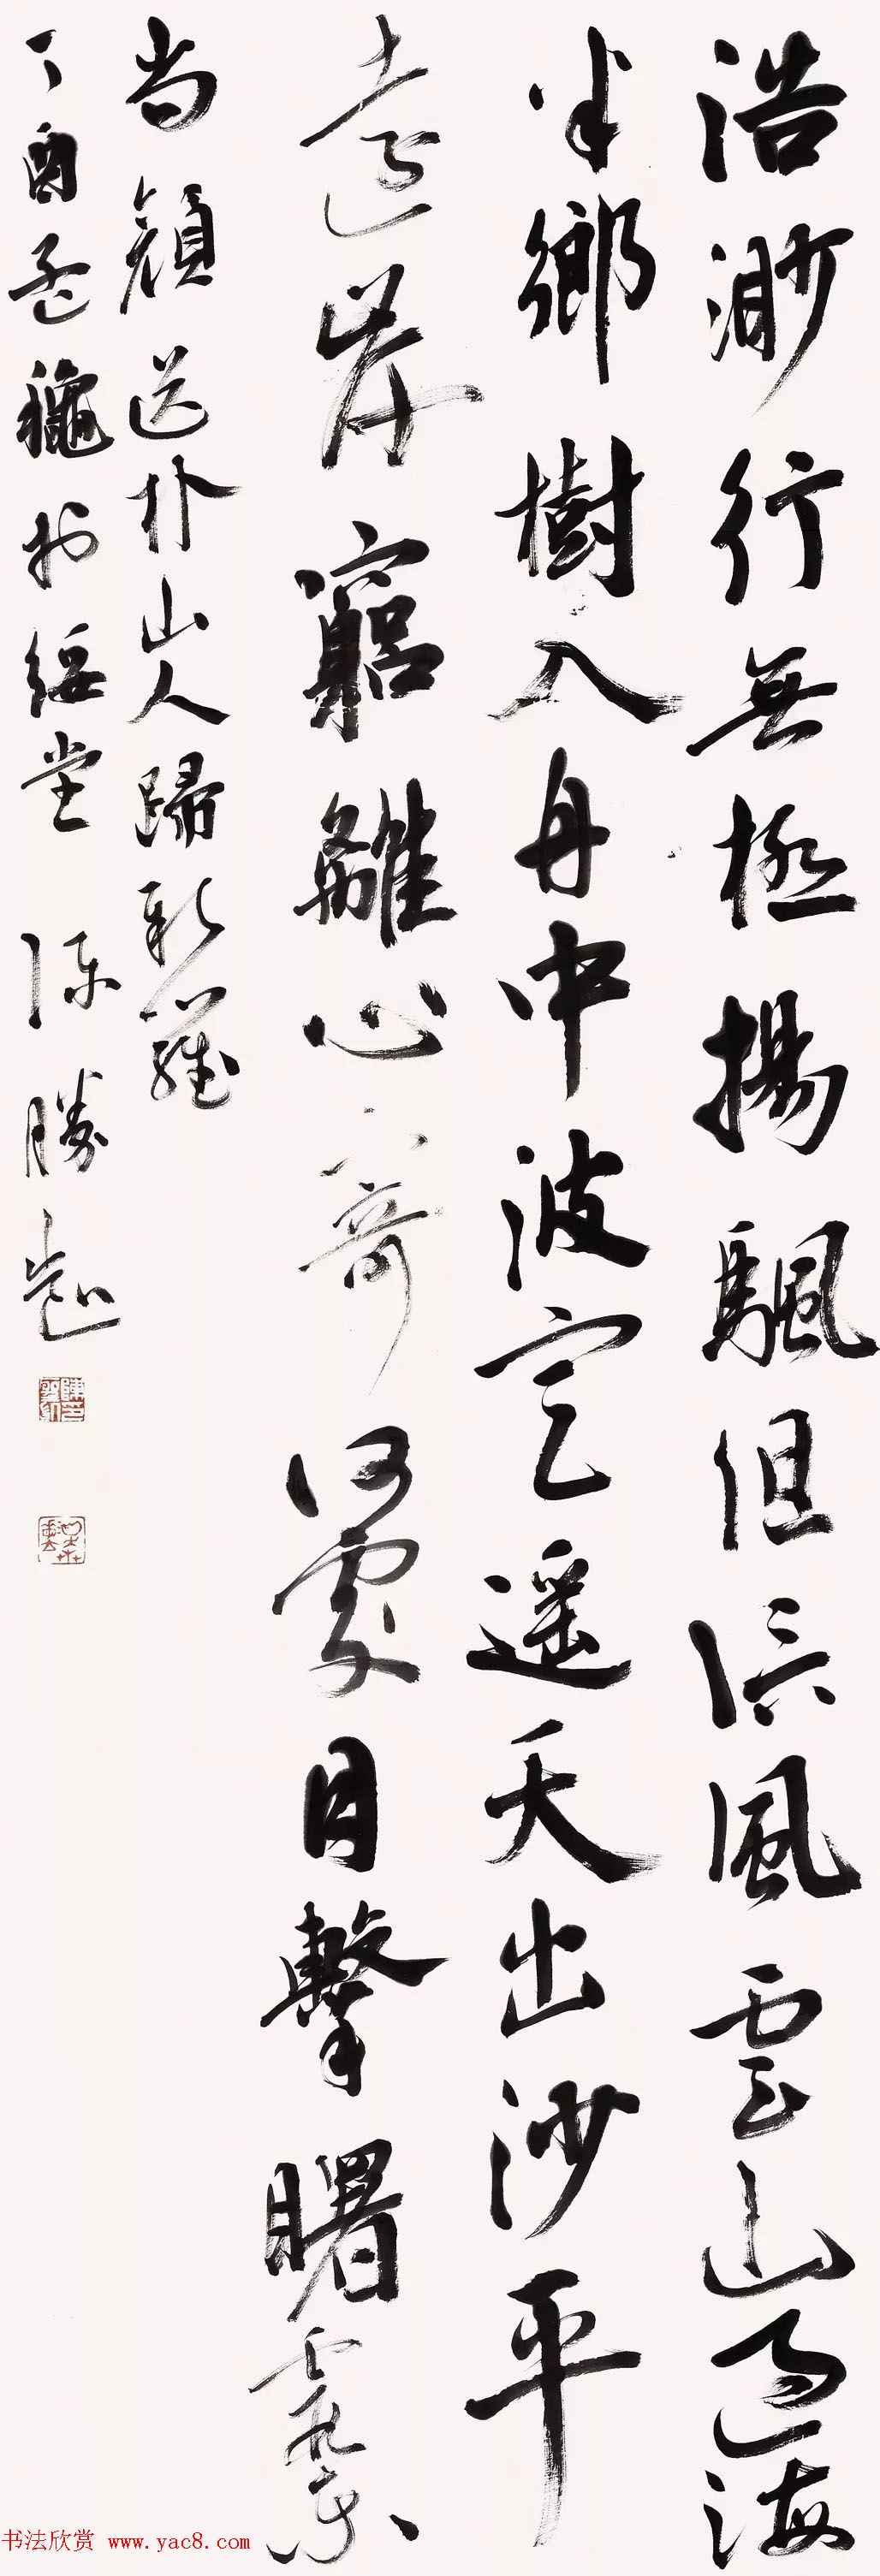 浩渺行無極揚颿但信風雲山過海
半鄉樹入舟中波定遥天出沙平
遠岸窮離心寄何處目擊曙霞東
尚顏送朴山人歸新羅
丁酉孟龝於綏堂 陳勝凱
书法欣赏 www.yac8.com